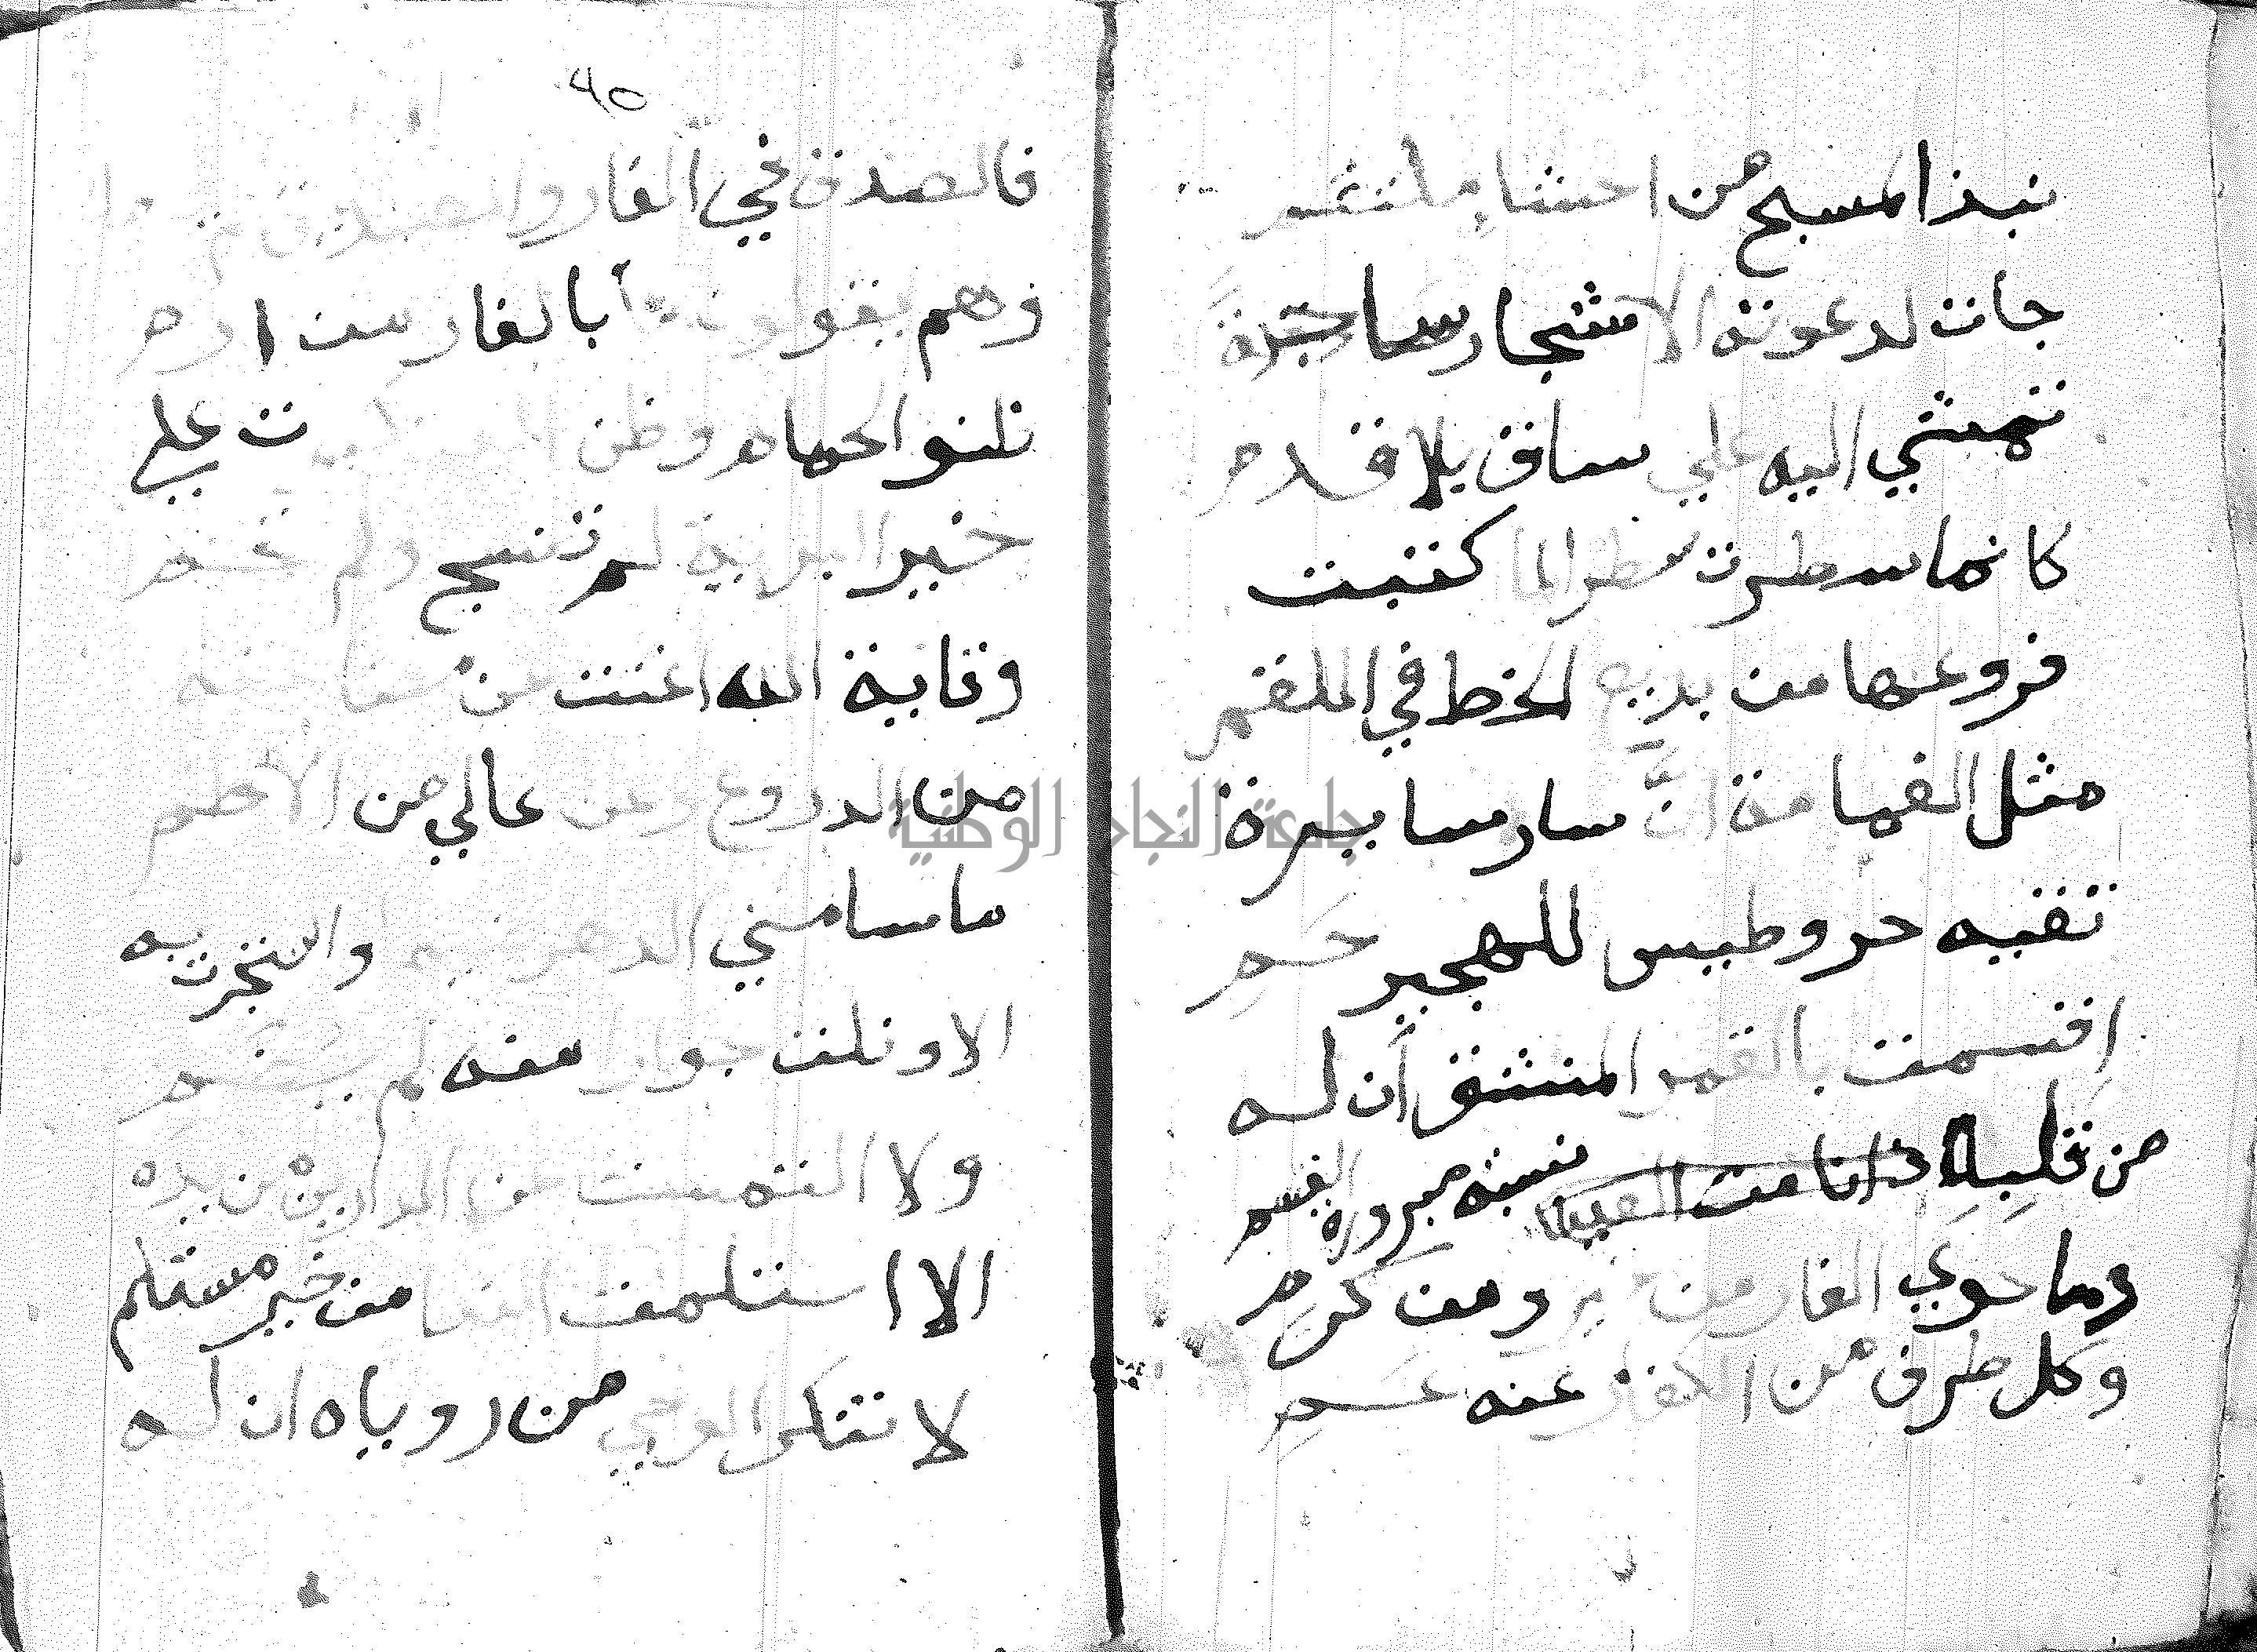 نبذ المسبح من احشاء ملتقم
جات لدعوته الاشجار ساجدة
تمشي اليه علي ساق بلا قدم
كانما سطرت سطرا لما كتبت
فروعها من بديع الخط في اللقم
مثل الغمامة انَّ سار سايرة
تقيه حر وطيس للهجير حَمِ
اقسمت بالقمر المنشق أن له
من قلبِهِ نسبة مبرورة القسم
وما حوي الغار من خير ومن كرم
وكل طرف من الكفار عنه عَمِ
٩٥
فالصدق في الغار والصديق لم يرما
وهم يقولون ما بالغار من ارم
ظنوا الحمام وظنوا العنكبوت علي
خير البرية لم تنسج ولم تحم
وقاية الله اغنت عن مضاعفة
من الدروع وعن عالي من الأطم
ما سامني الدهر ضيما واستجرت به
الا ونلت جوارا منه لم يُضَم
ولا التمست غني الدارين من يده
الا استلمت الندا من خير مستلم
لا تنكر الوحي من روياه ان له
جامعة النجاح الوطنية